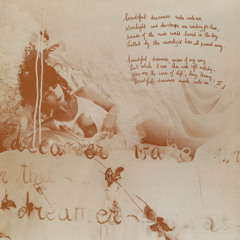 beautiful dreamer wake unto me
starlight and dewdrops are waiting for thee
sounds of the rude world heard in the day
lulled by the moonlight have all passed away
beautiful dreamer, queen of my song
list while I woo thee with soft melody
gone are the cares of life's busy throng
Beautiful dreamer awake unto me
dreamer wa
dreamer